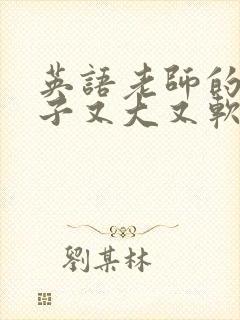 英語老師的
子又大又軟
劉某林